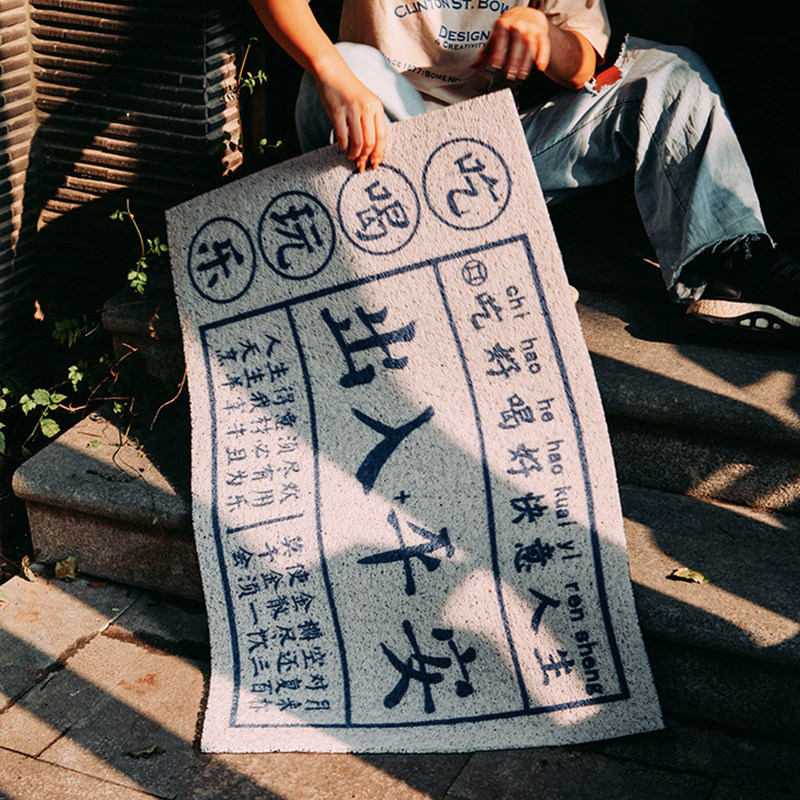 CLINTON ST.
DESIGN
& CREATIVITY
吃喝玩乐
chi hao he hao kuai yi ren sheng
吃好喝好快意人生
出入平安
人生得意须尽欢 莫使金樽空对月
天生我材必有用 千金散尽还复来
烹羊宰牛且为乐 会须一饮三百杯